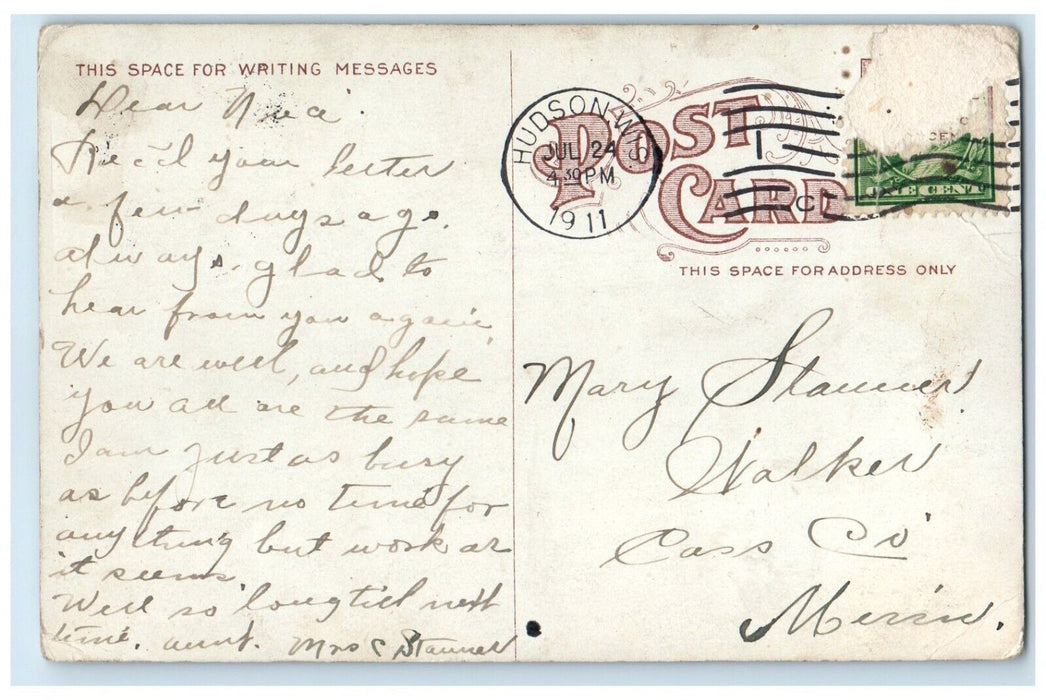 THIS SPACE FOR WRITING MESSAGES
Dear
Rec'd your letter
a few days ago
always glad to
hear from you again,
We are well, and hope
you all are the same
I am just as busy
as before no time for
anything but work as
it seems.
Well so long till next
time. aunt. Mrs C Stanner
HUDSON, WIS.
JUL 24
4 30 PM
1911
POST
CARD
ONE CENT
THIS SPACE FOR ADDRESS ONLY
Mary Stanner
Walker
Cass Co
Minn.